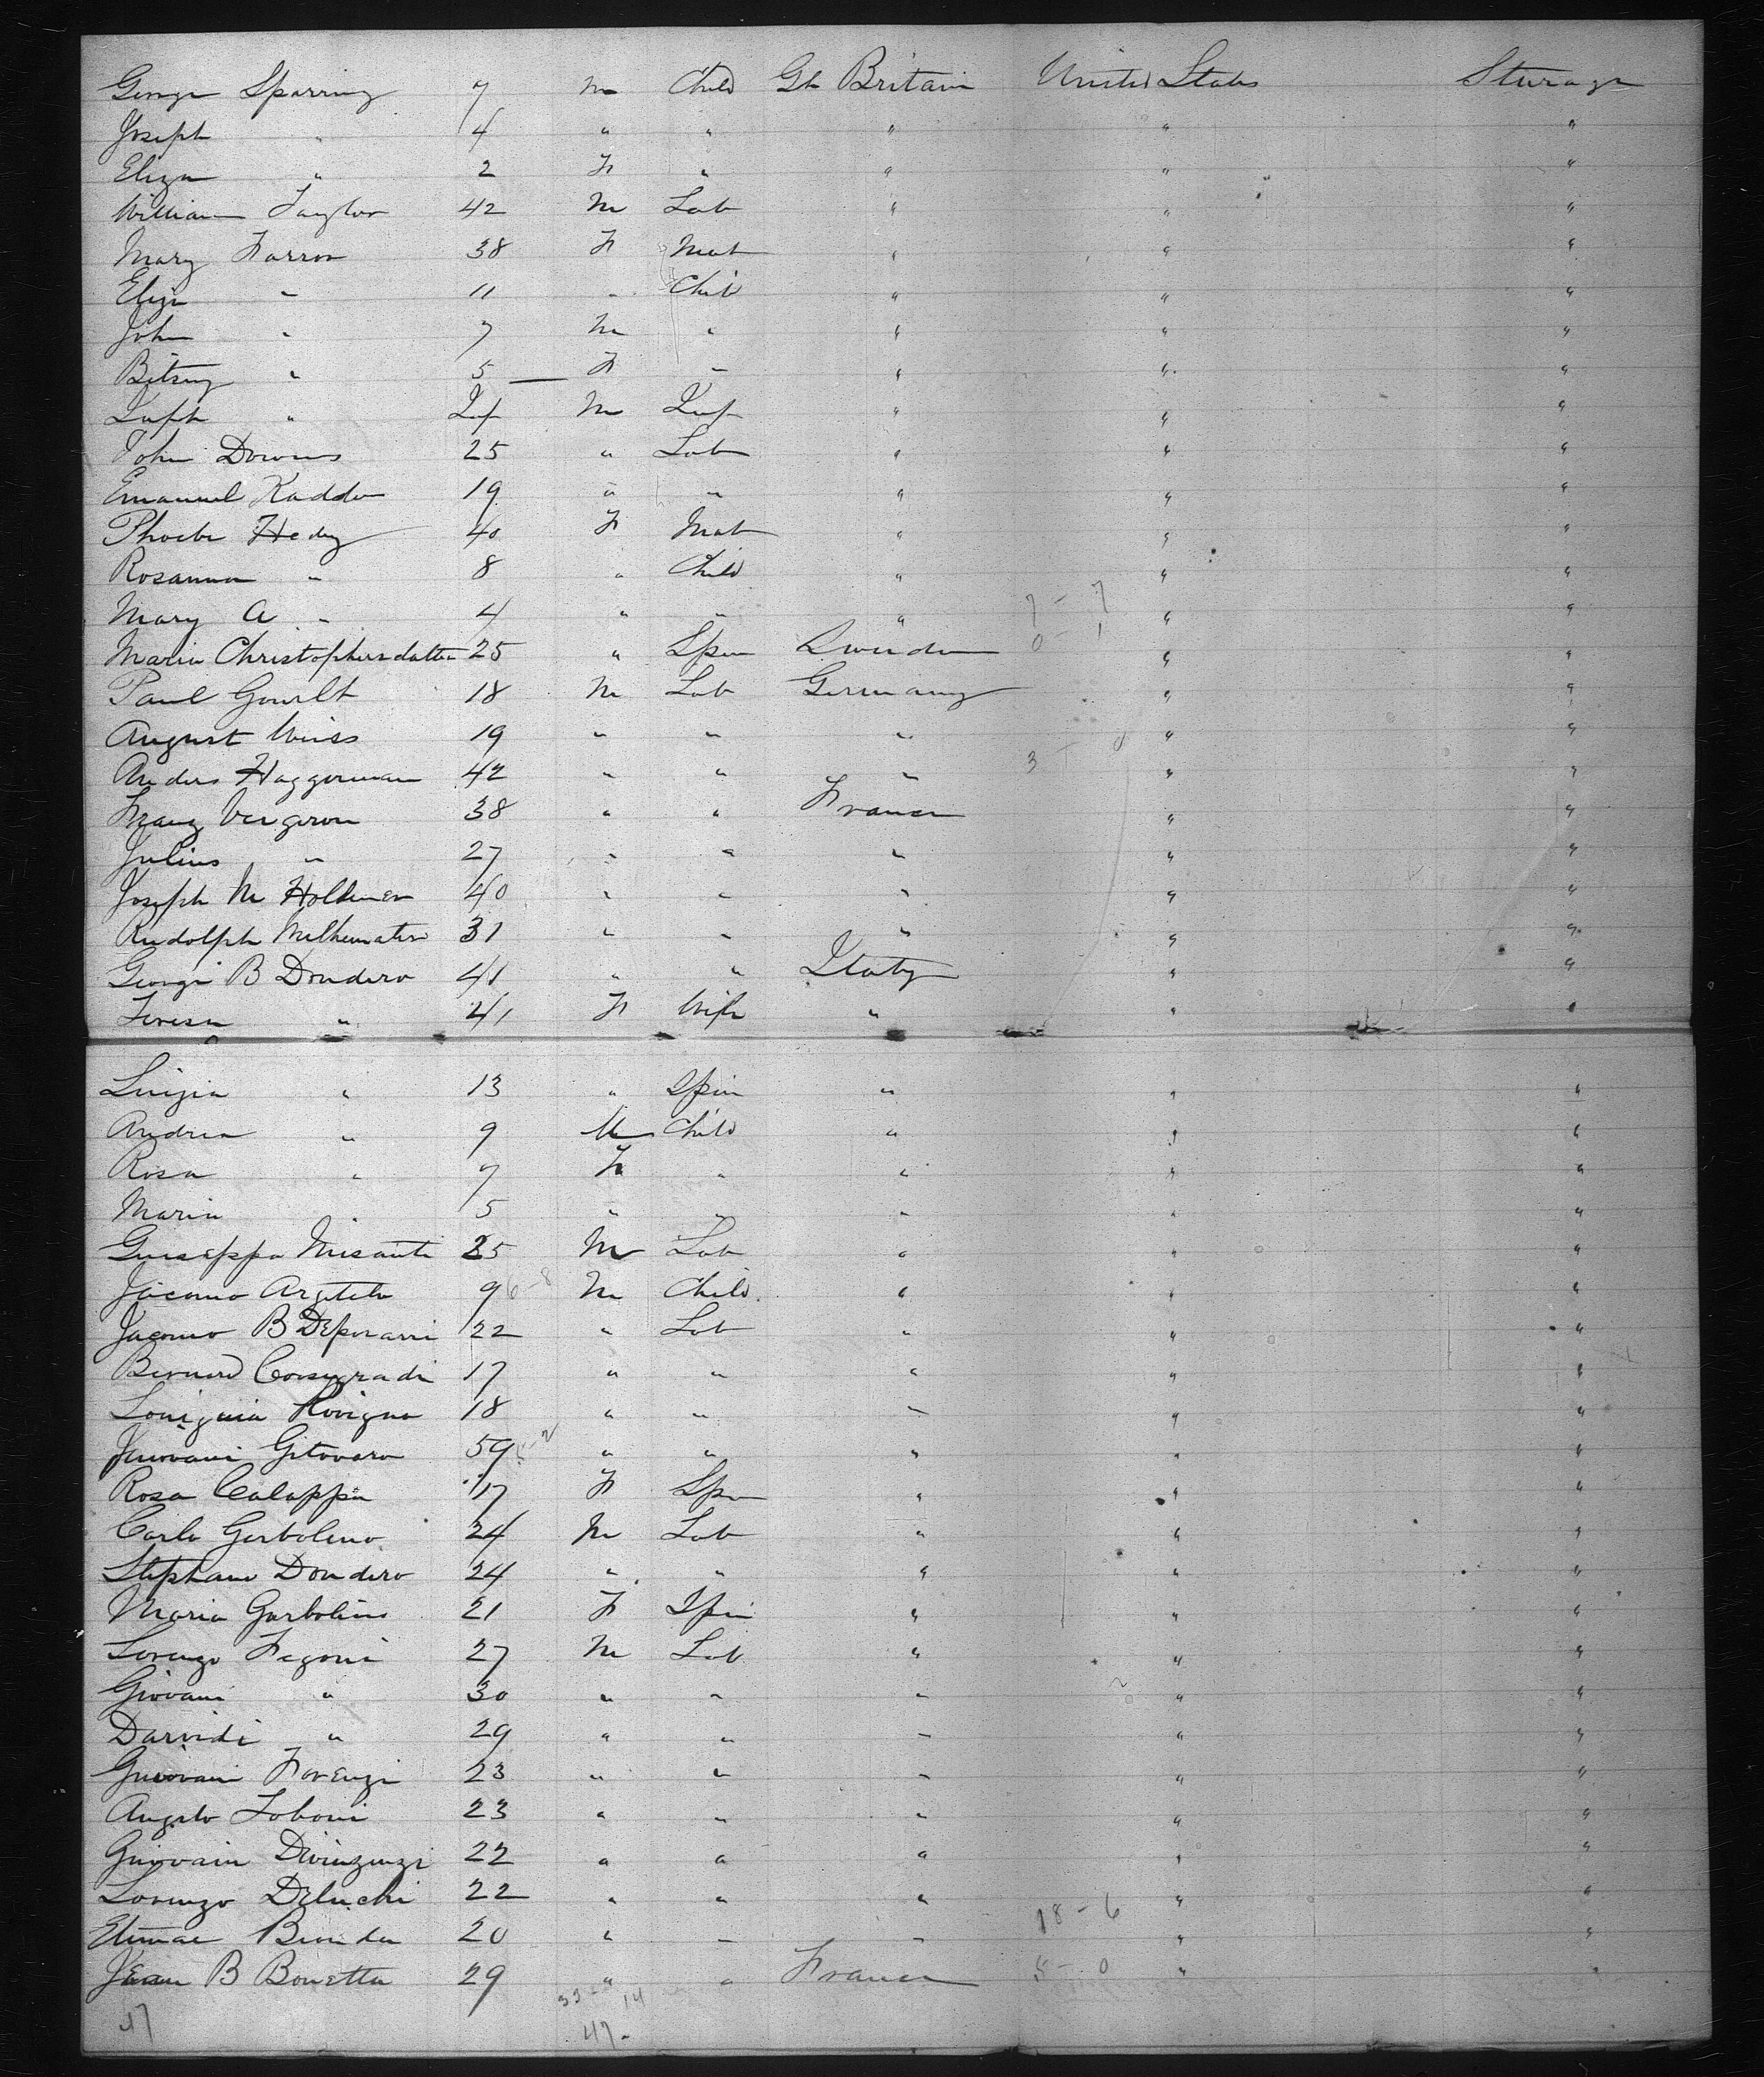 George Sparring 7 M Child Gt Britain United States Sturage
Joseph " 4 " " " " "
Eliza " 2 F " " " "
William Taylor 42 M Lab " " "
Mary Farron 38 F Mat " " "
Eliza " 11 " Child " " "
John " 7 M " " " "
Betsey " 5 F " " " "
" Inf M Inf " " "
John Downes 25 " Lab " " "
Emanuel Kaddon 19 " " " " "
Phoebe Hedey 40 F Mat " " "
Rosanna " 8 " Child " " "
Mary A " 4 " " " 7 - 7 " "
Maria Christophersdatter 25 " Spin Sweden 0 - 1 " "
Paul 18 M Lab Germany " "
August Weiss 19 " " " " "
Anders Haggerman 42 " " " 3 - 0 " "
Franz Vergeron 38 " " France " "
Julius " 27 " " " " "
Joseph M 40 " " " " "
Rudolph 31 " " " " "
George B Dondero 41 " " Italy " "
Teresa " 41 F Wife " " "
Luigia " 13 " Spin " " "
Andrea " 9 M Child " " "
Rosa " 7 F " " " "
Maria " 5 " " " " "
Guiseppa 25 M Lab " " "
Jacomo 9 6-8 M Child " " "
Jacomo B Deporarri 22 " Lab " " "
Bernard 17 " " " " "
Rovigno 18 " " " " "
Gitovaro 59 " " " " "
Rosa Calappa 17 F Spin " " "
Carlo Garbolino 24 M Lab " " "
Stephano Dondero 24 " " " " "
Maria Garbolino 21 F Spin " " "
Lorenzo Fegoni 27 M Lab " " "
Giovani " 30 " " " " "
Darvidi " 29 " " " " "
Guiovani Forenzi 23 " " " " "
Angelo Loboni 23 " " " " "
Guiovani 22 " " " " "
Lorenzo Deluchi 22 " " " " "
20 " " " 18 - 6 " "
Jean B Bonetta 29 " " France 5 - 0 " "
47 33 - 14
47 -